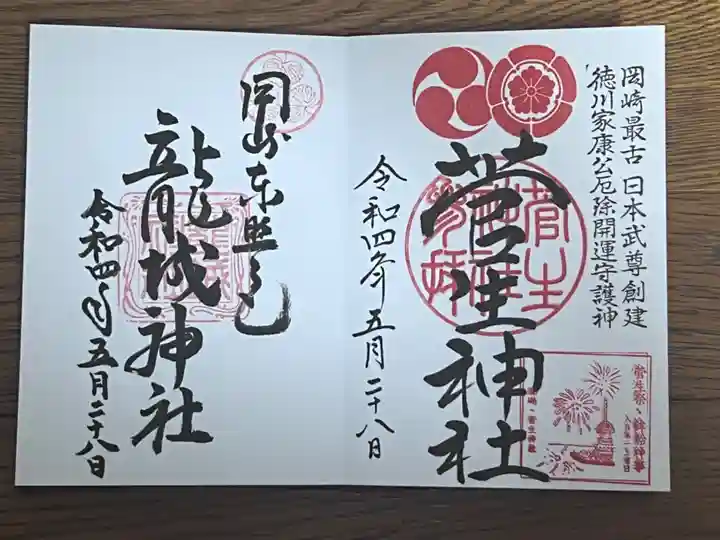 岡崎最古 日本武尊創建
徳川家康公厄除開運守護神
菅生神社
令和四年五月二十八日
菅生祭・鉾船神事
菅生神社
龍城神社
令和四年五月二十八日